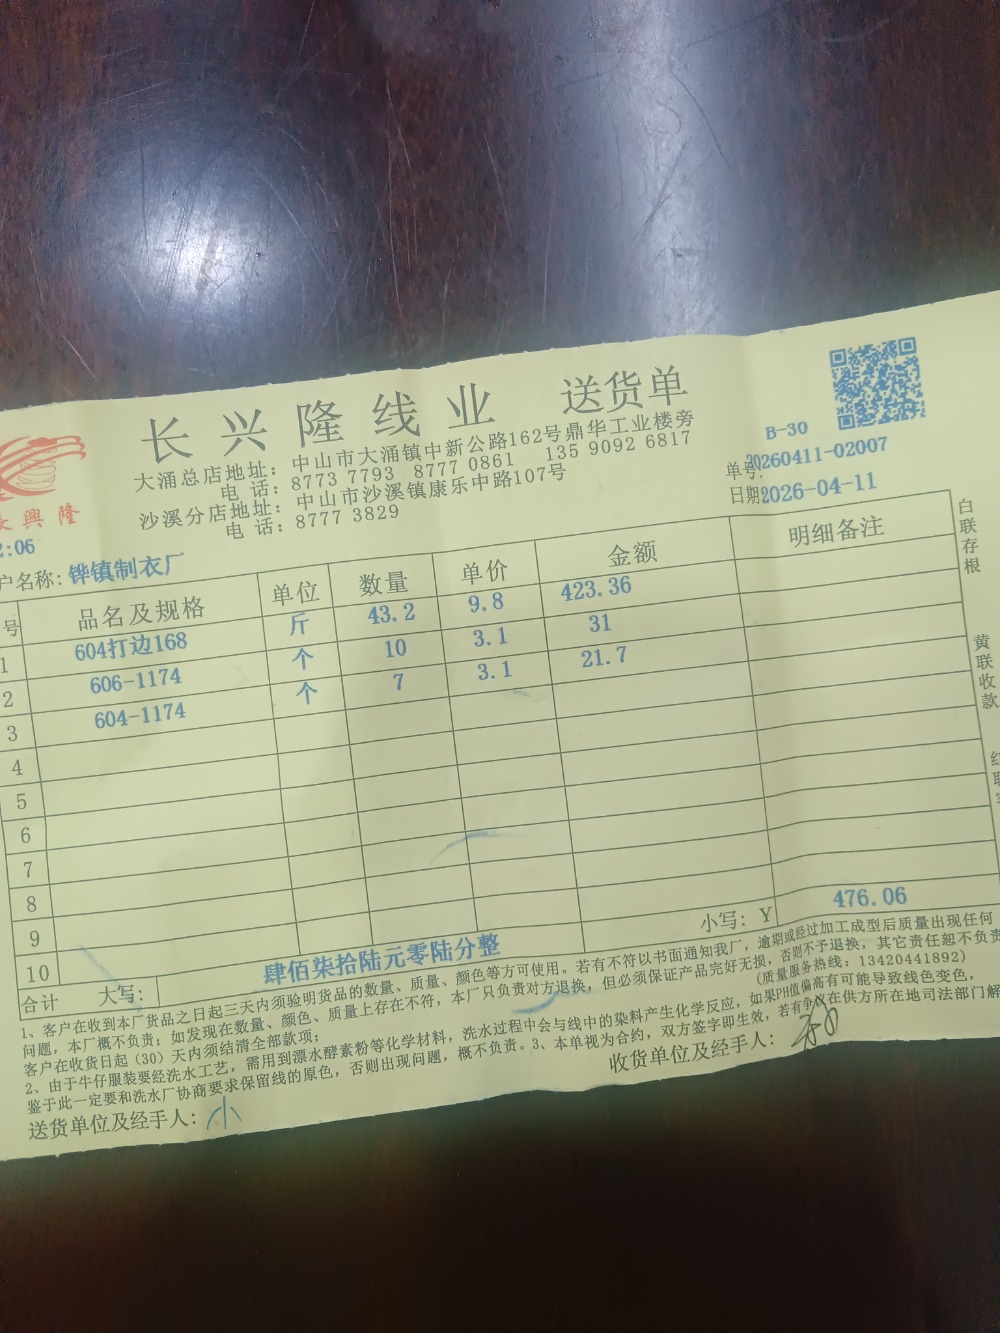 长兴隆线业 送货单
B-30
大涌总店地址：中山市大涌镇中新公路162号鼎华工业楼旁
电 话：8773 7793 8777 0861 135 9092 6817
单号:20260411-02007
沙溪分店地址：中山市沙溪镇康乐中路107号
电 话：8777 3829
日期:2026-04-11
興隆
2:06
户名称:铧镇制衣厂
号 品名及规格 单位 数量 单价 金额 明细备注
1 604打边168 斤 43.2 9.8 423.36
2 606-1174 个 10 3.1 31
3 604-1174 个 7 3.1 21.7
4
5
6
7
8
9
10
合计 大写: 肆佰柒拾陆元零陆分整 小写: Y 476.06
1、客户在收到本厂货品之日起三天内须验明货品的数量、质量、颜色等方可使用。若有不符以书面通知我厂，逾期或经过加工成型后质量出现任何
问题，本厂概不负责；如发现在数量、颜色、质量上存在不符，本厂只负责对方退换，但必须保证产品完好无损，否则不予退换，其它责任恕不负责
客户在收货日起（30）天内须结清全部款项； （质量服务热线：13420441892）
2、由于牛仔服装要经洗水工艺，需用到漂水酵素粉等化学材料，洗水过程中会与线中的染料产生化学反应，如果PH值偏高有可能导致线色变色，
鉴于此一定要和洗水厂协商要求保留线的原色，否则出现问题，概不负责。3、本单视为合约，双方签字即生效，若有争议在供方所在地司法部门解
送货单位及经手人：小
收货单位及经手人：
白联存根
黄联收款
红联